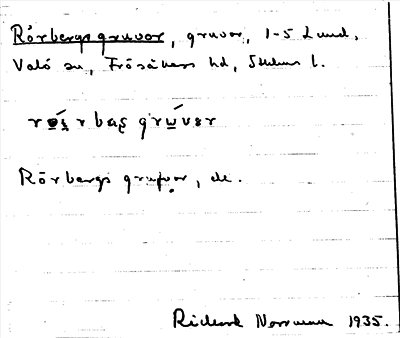 Rörbergs gruvor, gruvor, 1-5 Lund,
Valö sn, Frösåkers hd, Sthlms l.
Rörbergs gruvor, de.
Richard Norrman 1935.